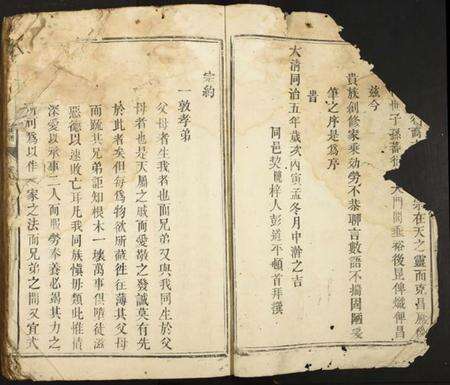 在天之靈而克昌厥
子孫蕃衍大門閭垂裕後昆俾熾俾昌
茲今
貴族創修家乘効勞不恭聊言數語不揣固陋爰
筆之序是爲序
旹
大清同治五年歲次丙寅孟冬月中澣之吉
同邑契剛梓人彭道平頓首拜撰
宗約
一敦孝弟
父母者生我者也而兄弟又與我同生於父
母者也是天屬之戚而愛敬之發誠莫有先
於此者矣但每爲物欲所蔽徃徃薄其父母
而疏其兄弟詎知根本一壞萬事俱隳徒滋
惡德以速敗亡耳凡我同族愼毋類此惟
深愛以承事二人而服勞奉養必竭其力之
所到爲以作一家之法而兄弟之間又宜式